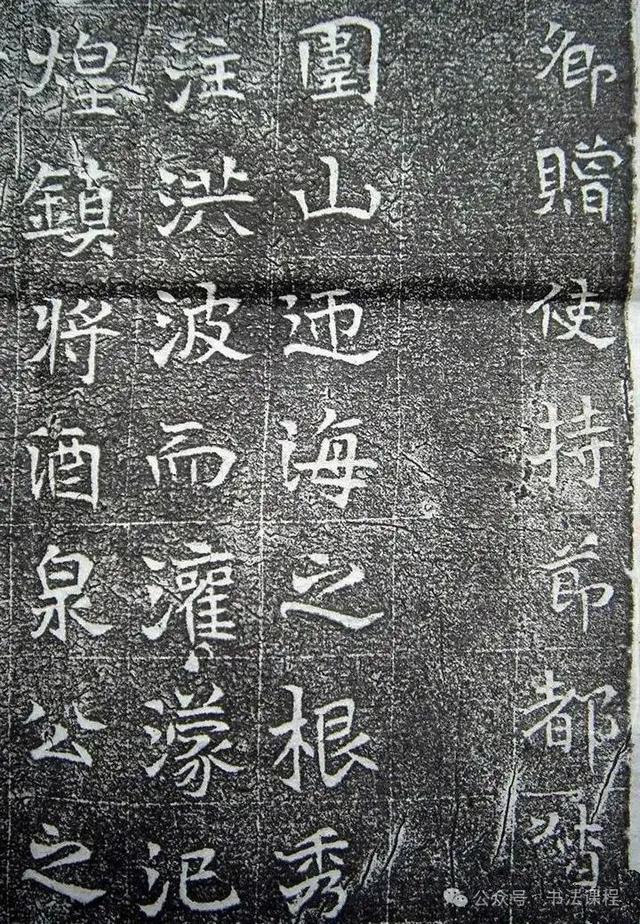 卿贈使持節都督
圍山迊海之根秀
注洪波而灌濛汜
煌鎮將酒泉公之
公众号·书法课程